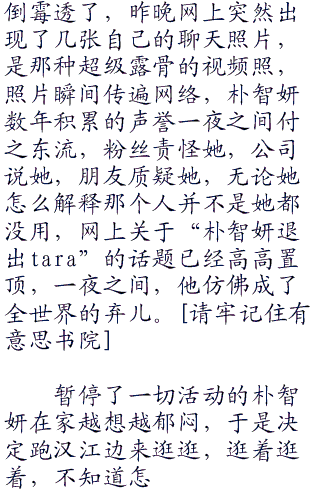 倒霉透了，昨晚网上突然出
现了几张自己的聊天照片，
是那种超级露骨的视频照，
照片瞬间传遍网络，朴智妍
数年积累的声誉一夜之间付
之东流，粉丝责怪她，公司
说她，朋友质疑她，无论她
怎么解释那个人并不是她都
没用，网上关于“朴智妍退
出tara”的话题已经高高置
顶，一夜之间，他仿佛成了
全世界的弃儿。[请牢记住有
意思书院]
　　暂停了一切活动的朴智
妍在家越想越郁闷，于是决
定跑汉江边来逛逛，逛着逛
着，不知道怎